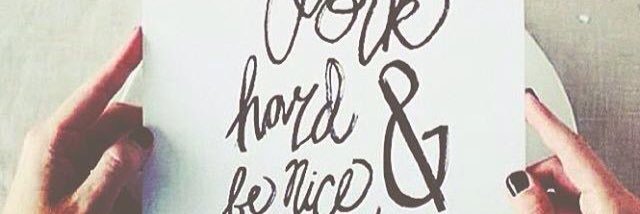 work
hard &
be nice